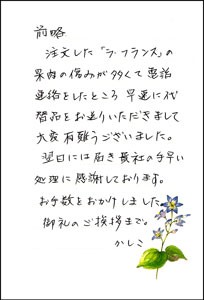 前略
注文した「ラ・フランス」の
果肉の傷みが多くて電話
連絡をしたところ 早速に代
替品をお送りいただきまして
大変有難うございました。
翌日には届き貴社の手早い
処理に感謝しております。
お手数をおかけしました。
御礼のご挨拶まで。
かしこ